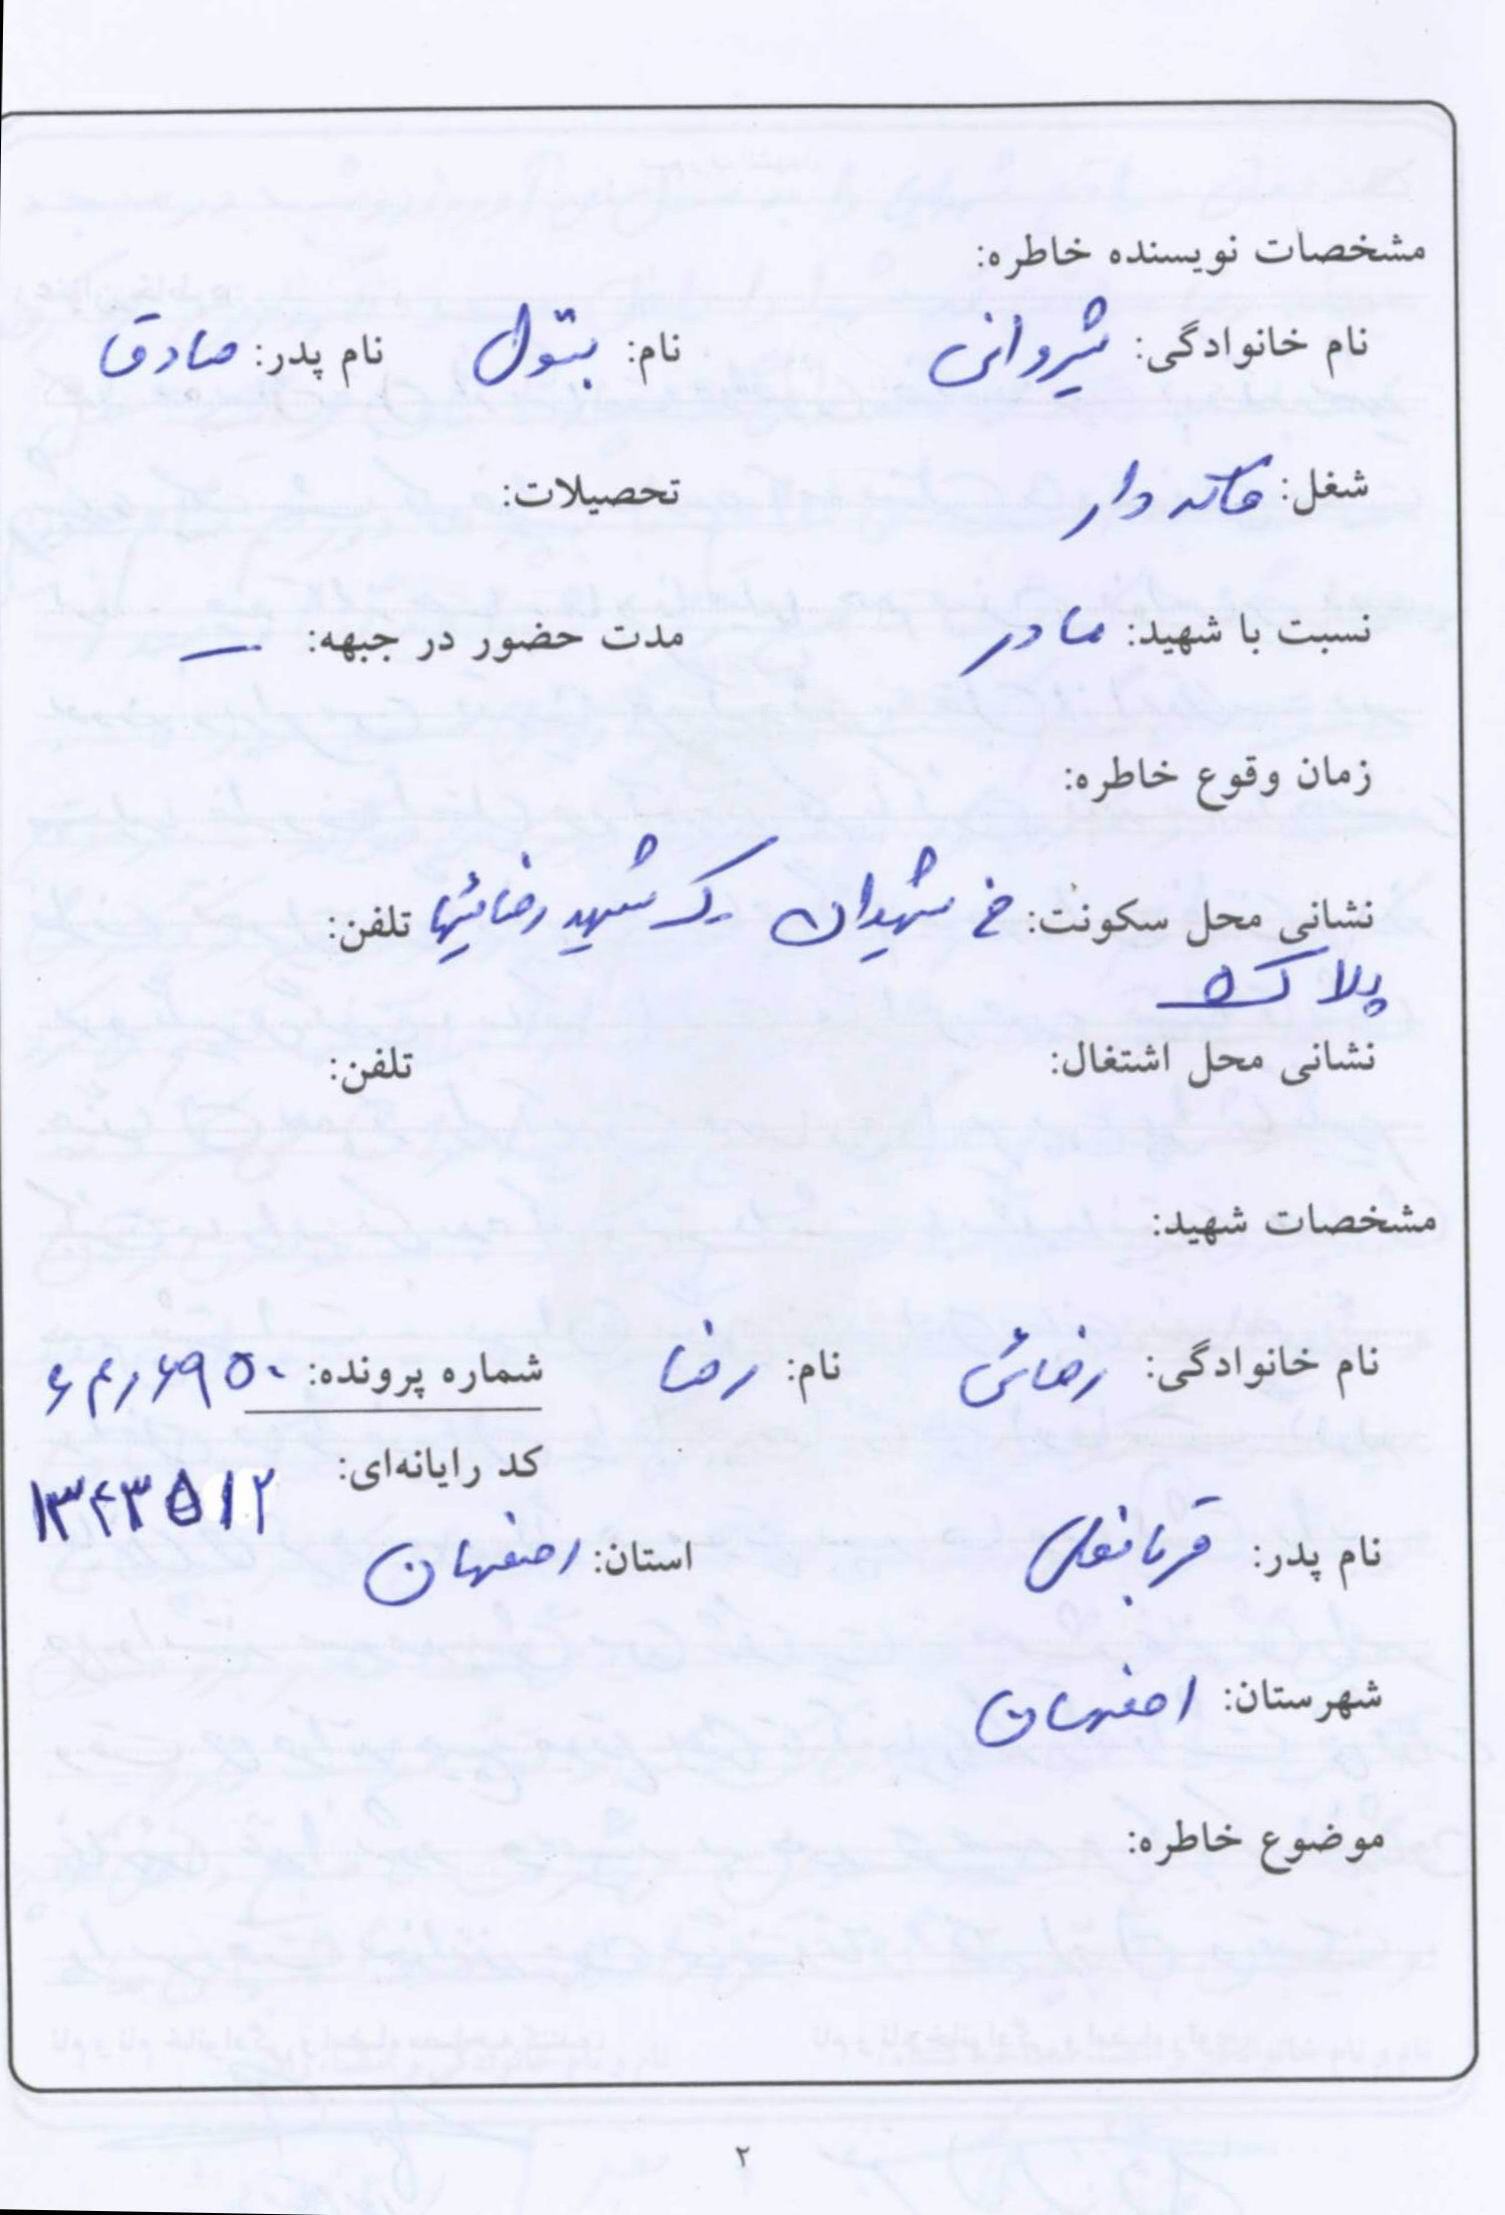 مشخصات نویسنده خاطره:
نام خانوادگی: شیروانی نام: بتول نام پدر: صادق
شغل: خانه دار تحصیلات:
نسبت با شهید: مادر مدت حضور در جبهه: —
زمان وقوع خاطره:
نشانی محل سکونت: خ شهیدان ک شهید رضائیها تلفن:
پلاک
نشانی محل اشتغال: تلفن:
مشخصات شهید:
نام خانوادگی: رضائی نام: رضا شماره پرونده: ۶۹۵۰
کد رایانه‌ای: ۱۳۴۳۵۱۲
نام پدر: قربانعلی استان: اصفهان
شهرستان: اصفهان
موضوع خاطره:
۲